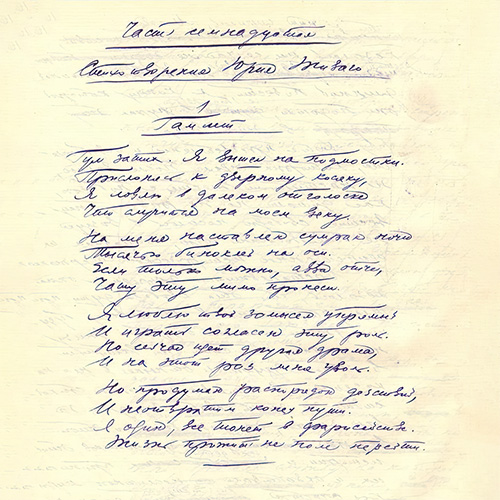 Часть семнадцатая
Стихотворения Юрия Живаго
1
Гамлет
Гул затих. Я вышел на подмостки.
Прислонясь к дверному косяку,
Я ловлю в далеком отголоске
Что случится на моем веку.
На меня наставлен сумрак ночи
Тысячью биноклей на оси.
Если только можно, авва отче,
Чашу эту мимо пронеси.
Я люблю твой замысел упрямый
И играть согласен эту роль.
Но сейчас идет другая драма,
И на этот раз меня уволь.
Но продуман распорядок действий,
И неотвратим конец пути.
Я один, все тонет в фарисействе.
Жизнь прожить не поле перейти.